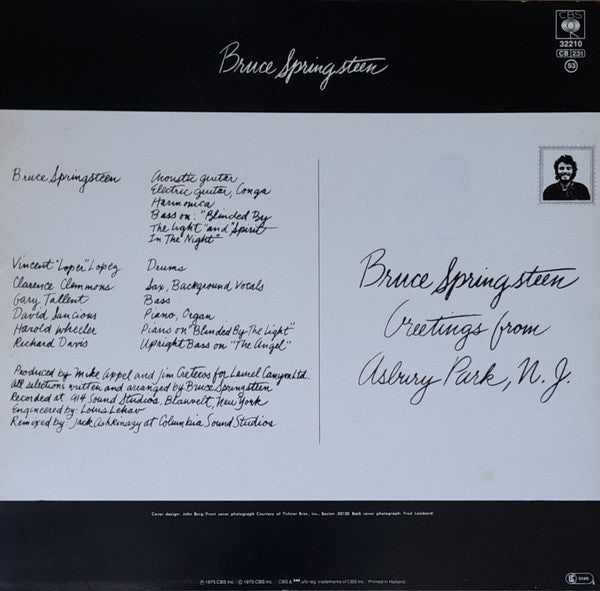 Bruce Springsteen
CBS
32210
CB 231
53
Bruce Springsteen Acoustic guitar
Electric guitar, Conga
Harmonica
Bass on: "Blinded By
The Light" and "Spirit
In The Night"
Vincent "Loper" Lopez Drums
Clarence Clemmons Sax, Background Vocals
Gary Tallent Bass
David Sancious Piano, Organ
Harold Wheeler Piano on "Blinded By The Light"
Richard Davis Upright Bass on "The Angel"
Produced by Mike Appel and Jim Cretecos for Laurel Canyon Ltd.
All selections written and arranged by Bruce Springsteen
Recorded at: 914 Sound Studios, Blauvelt, New York
Engineered by: Louis Lahav
Remixed by: Jack Ashkinazy at Columbia Sound Studios
Bruce Springsteen
Greetings from
Asbury Park, N.J.
Cover design: John Berg/Front cover photograph Courtesy of Tichnor Bros., Inc., Boston, 02130 Back cover photograph: Fred Lombardi
℗ 1975 CBS Inc. / © 1975 CBS Inc. / CBS & are reg. trademarks of CBS Inc. Printed in Holland